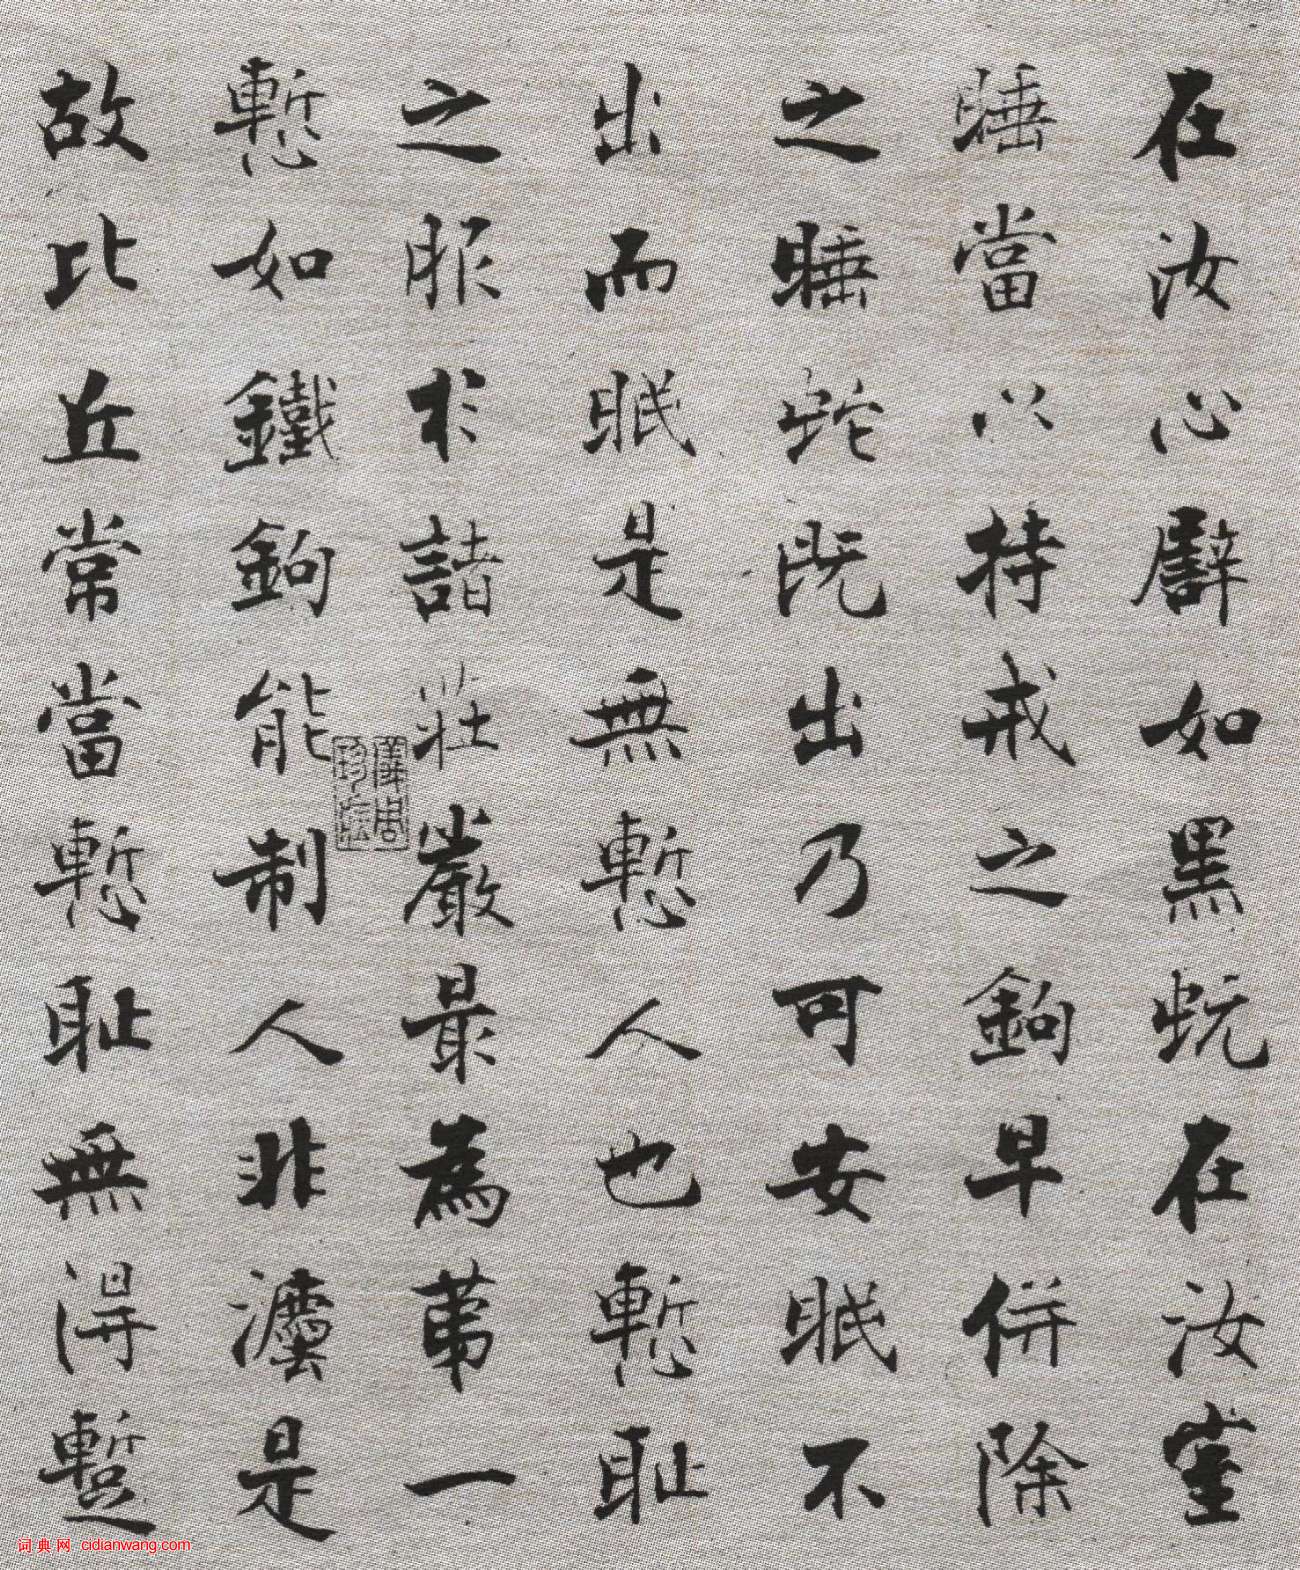 在汝心譬如黑蚖在汝室
睡當以持戒之鉤早併除
之睡蛇既出乃可安眠不
出而眠是無慙人也慙耻
之服於諸莊嚴最為第一
慙如鐵鉤能制人非法是
故比丘常當慙耻無得蹔
词典网 cidianwang.com